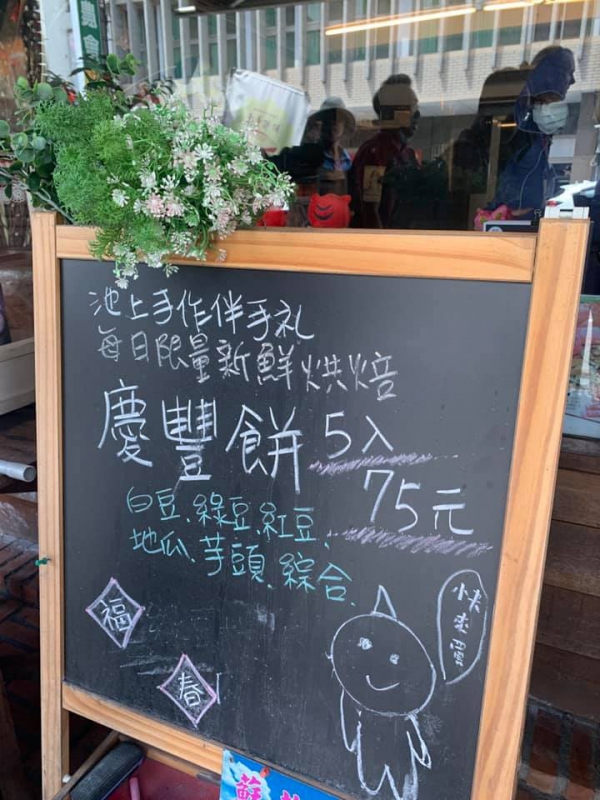 池上手作伴手礼
每日限量新鮮烘焙
慶豐餅5入
75元
白豆、綠豆、紅豆、
地瓜、芋頭、綜合、
福
春
快來買
蘇